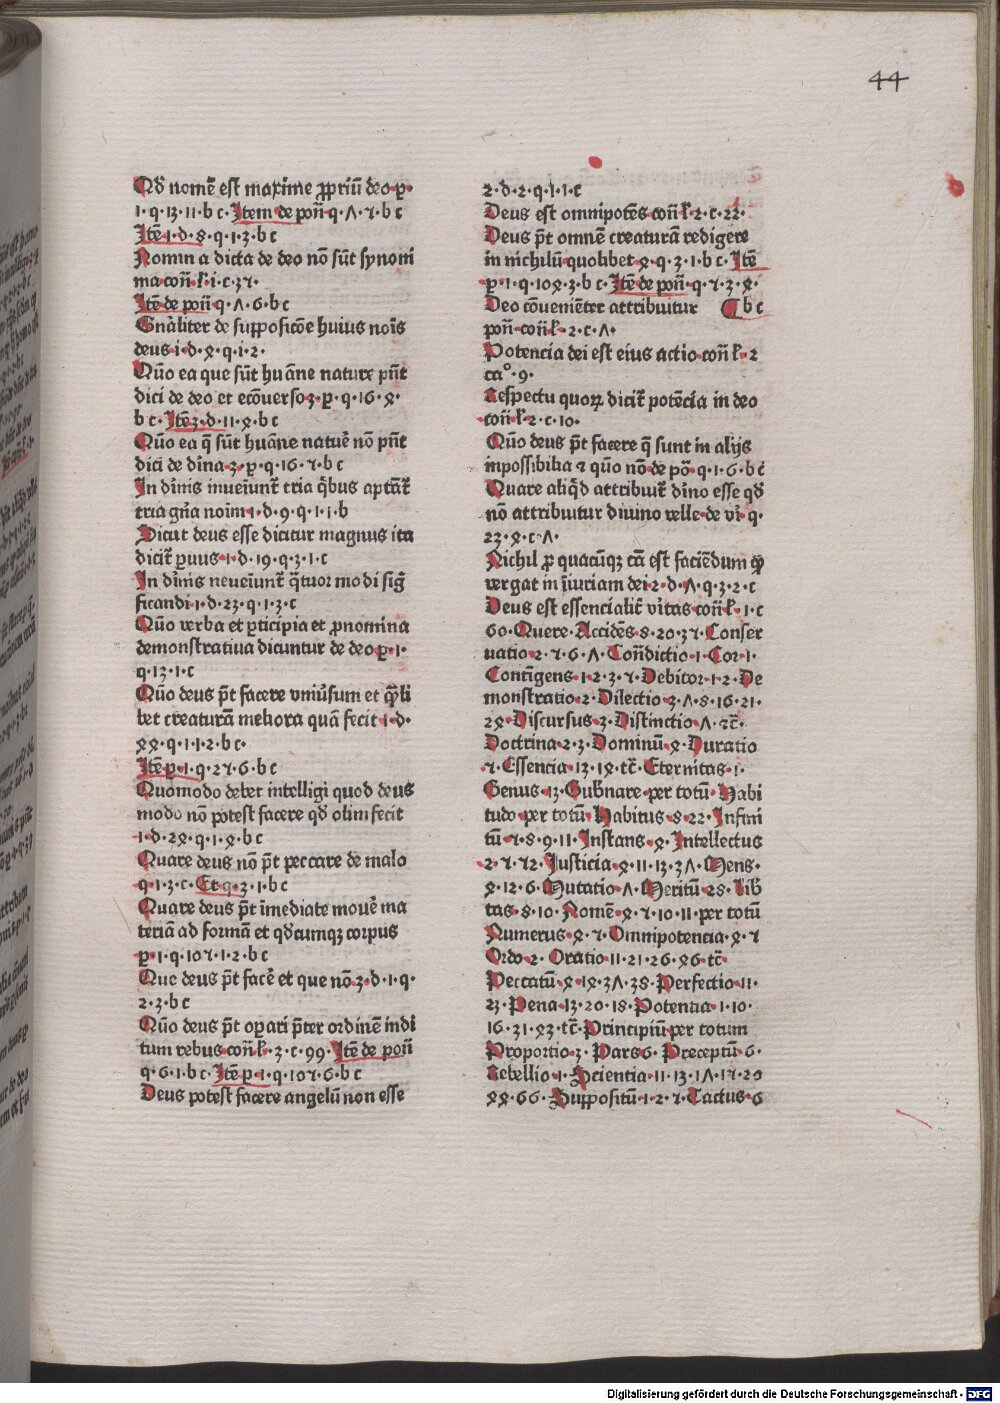 44
Qđ nomē est maxime ꝓpriū deo·p̄·
1·q·13·11·b c·Item de poñ q·ʌ·ꝛ·b c
Itē·1·d·8·q·1·3·b c
Nomin a dicta de deo nō sūt synoni
ma coñ·ł·i·c·3ꝛ·
Itē de poñ q·ʌ·6·b c
Gñaliter de supposicōe huius noīs
deus·1·d·ꝝ·q·i·2·
Quō ea que sūt huāne nature pñt
dici de deo et ecōuerso·3·p̄·q·16·ꝝ·
b c·Itē·3·d·11·ꝝ·b c
Quō ea q̄ sūt huāne natuř nō pñt
dici de dīna·3·p̄·q·16·ꝛ·b c
In dīnis inueiunt̄ tria q̄bus aptāt̄
tria gña noīm·1·d·9·q·1·1·b
Sicut deus esse dicitur magnus ita
dicit̄ ꝑuus·1·d·19·q·3·1·c
In dīnis neueiunt̄ q̄tuor modi sig̃
ficandi·1·d·23·q·1·3·c
Quō verba et ꝑticipia et ꝓnomina
demonstratiua dicuntur de deo·p̄·1·
q·13·1·c
Quō deus pt̄ facere vniūsum et q̄li
bet creaturā meliora quā fecit·1·d·
ꝝꝝ·q·1·1·2·b c·
Itē p̄·1·q·2ꝛ·6·b c
Quomodo debet intelligi quod deus
modo nō potest facere qđ olim fecit
1·d·2ꝝ·q·1·ꝝ·b c
Quare deus nō pt̄ peccare de malo
q·1·3·c·Et q·3·1·b c
Quare deus pt̄ īmediate mouē ma
teriā ad formā et qđcumqꝫ corpus
p̄·1·q·10ꝛ·1·2·b c
Que deus pt̄ facē et que nō·3·d·1·q·
2·3·b c
Quō deus pt̄ oꝑari p̄ter ordinē indi
tum rebus coñ·ł·3·c·99·Itē de poñ
q·6·1·b c·Itē p̄·1·q·10ꝛ·6·b c
Deus potest facere angelū non esse
2·d·2·q·1·1·c
Deus est omnipotēs coñ·ł·2·c·22·
Deus pt̄ omnē creaturā redigere
in nichilū quolibet ꝝ·q·3·1·b c·Itē
p̄·1·q·10ꝝ·3·b c·Itē de poñ·q·ꝛ·3·ꝝ·
Deo cōuenieñter attribuitur ¶ b c
poñ·coñ·ł·2·c·ʌ·
Potencia dei est eius actio coñ·ł·2
ca°·9·
Respectu quoꝝ dicit̄ potēcia in deo
coñ·ł·2·c·10·
Quō deus pt̄ facere q̄ sunt in alijs
inpossibilia ⁊ quō nō·de pō·q·1·6·b c
Quare aliq̄d attribuit̄ dīno esse qđ
nō attribuitur diuino velle·de vi·q·
23·ꝝ·c·ʌ·
Nichil ꝓ quacūqꝫ cā est faciēdum q̄
vergat in iīuriam dei·2·d·ʌ·q·3·2·c
Deus est essencialiť vitas coñ·ł·1·c
60·Quere·Accidēs·8·20·3ꝛ·Conser
uatio·2·ꝛ·6·ʌ·Coñdictio·1·Cor·1·
Contīgens·1·2·3·ꝛ·Debitor·1·2·De
monstratio·2·Dilectio·3·ʌ·8·16·21·
2ꝝ·Discursus·3·Distinctio·ʌ·ꝛc̄·
Doctrina·2·3·Dominū·ꝝ·Duratio
ꝛ·Essencia·13·1ꝝ·ꝛc̄·Eternitas·1·
Genus·13·Gub̄nare·per totū·Habi
tudo·per totū·Habitus·8·22·Infini
tū·ꝛ·8·9·11·Instans·ꝝ·Intellectus
2·ꝛ·ꝛ2·Iusticia·ꝝ·11·13·3ʌ·Mens·
ꝝ·12·6·Mutatio·ʌ·Meritū·28·Lib̄
tas·8·10·Nomē·ꝝ·ꝛ·10·11·per totū
Numerus·ꝝ·ꝛ·Omnipotencia·ꝝ·ꝛ
Ordo·2·Oratio·11·21·26·ꝝ6·ꝛc̄·
Peccatū·ꝝ·1ꝝ·3ʌ·38·Perfectio·11·
23·Pena·13·20·18·Potentia·1·10·
16·31·ꝝ3·ꝛc̄·Principiū·per totum
Proportio·3·Pars·6·Preceptū·6·
Rebellio·1·Scientia·11·13·1ʌ·1ꝛ·20
ꝝꝝ·66·Suppositū·1·2·ꝛ·Tactus·6
Digitalisierung gefördert durch die Deutsche Forschungsgemeinschaft - DFG